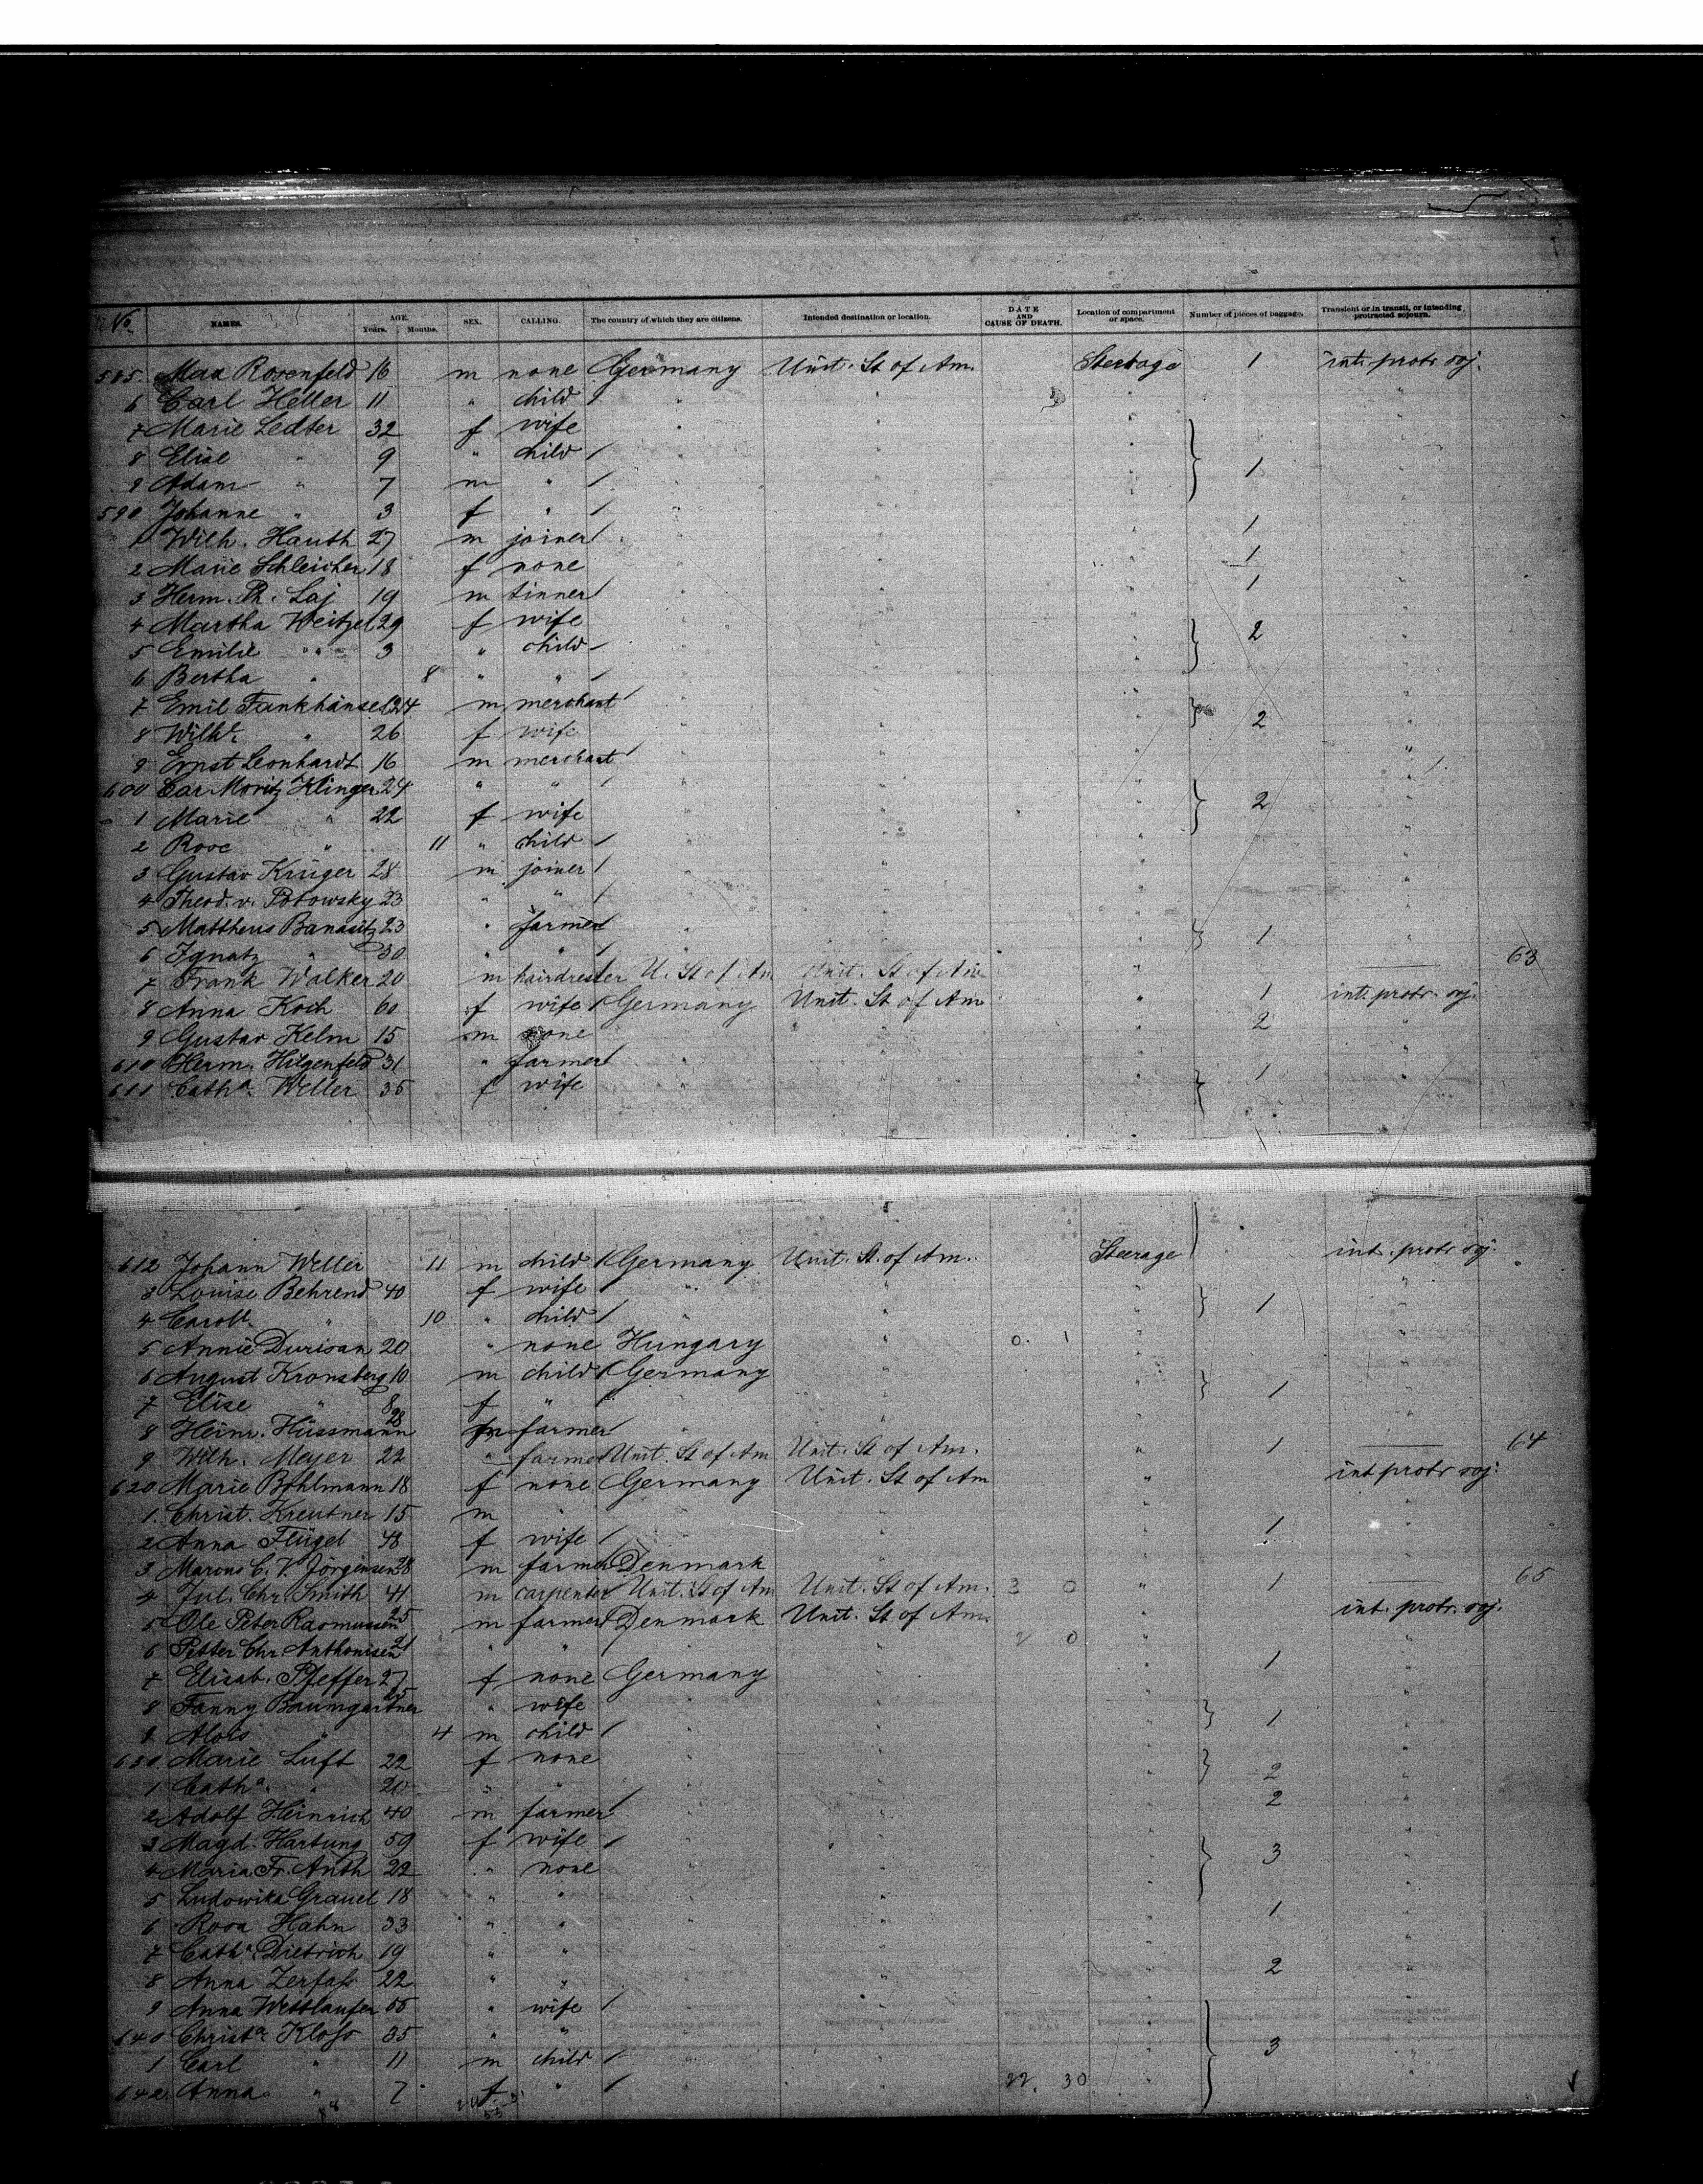 No. NAMES. AGE. Years. Months. SEX. CALLING. The country of which they are citizens. Intended destination or location. DATE AND CAUSE OF DEATH. Location of compartment or space. Number of pieces of baggage. Transient or in transit, or intending protracted sojourn.
585 Max Rosenfeld 16 m none Germany Unit. St of Am. Steerage 1 int. protr. soj.
6 Carl Heller 11 " child / " " " "
7 Marie Ledter 32 f wife " " " "
8 Elise " 9 " child / " " " 1 "
9 Adam " 7 m " / " " " "
590 Johanne " 3 f " / " " " "
1 Wilh. Hauth 27 m joiner / " " " 1 "
2 Marie Schleicher 18 f none " " " 1 "
3 Herm. Ph. Laj 19 m tinner / " " " 1 "
4 Martha Weitzel 29 f wife " " " 2 "
5 Emilie " 3 " child / " " " "
6 Bertha " 8 " " / " " " "
7 Emil Fankhänsel 24 m merchant / " " " "
8 Wilhe. " 26 f wife " " " 2 "
9 Ernst Leonhardt 16 m merchant / " " " "
600 Car. Moritz Klinger 24 " " / " " " "
1 Marie " 22 f wife " " " 2 "
2 Rose " 11 " child / " " " "
3 Gustav Krüger 28 m joiner / " " " "
4 Theod. v. Potowsky 23 " " / " " " "
5 Mattheus Banasitz 23 " farmer " " " 1 "
6 Ignatz " 30 " " / " " " "
7 Frank Walker 20 m hairdresser U. St of Am Unit. St of Am " — 63
8 Anna Koch 60 f wife / Germany Unit. St of Am " 1 int. protr. soj.
9 Gustav Kelm 15 m none " " " 2 "
610 Herm. Hilgenfeld 31 " farmer / " " " "
611 Catha. Weller 35 f wife " " " 1 "
612 Johann Weller 11 m child / Germany Unit. St. of Am. Steerage int. protr. soj.
3 Louise Behrend 40 f wife " " " "
4 Carole. " 10 " child / " " " 1 "
5 Annie Durisan 20 " none Hungary " 0. 1 " "
6 August Kronsberg 10 m child / Germany " " "
7 Elise " 8 f " / " " " 1 "
8 Heinr. Hüssmann 28 m farmer / " " " "
9 Wilh. Meyer 22 " farmer Unit. St of Am Unit. St of Am. " 1 — 64
620 Marie Bohlmann 18 f none Germany Unit. St of Am " int protr soj.
1. Christ. Kreutner 15 m " " " " "
2 Anna Flügel 48 f wife / " " " 1 "
3 Marcus C. V. Jörgensen 28 m farmer Denmark " " "
4 Jul. Chr. Smith 41 m carpenter Unit. St of Am Unit. St of Am. 3 0 " 1 65
5 Ole Peter Rasmussen 25 m farmer Denmark Unit. St of Am. " int. protr. soj.
6 Petter Chr. Anthonisen 21 " " " " 2 0 " "
7 Elisab. Pfeffer 27 f none Germany " " 1 "
8 Fanny Baumgartner 25 " wife " " " "
9 Alois " 4 m child / " " " 1 "
630. Marie Luft 22 f none " " " "
1 Catha. " 20 " " " " " 2 "
2 Adolf Heinrich 40 m farmer / " " " 2 "
3 Magd. Hartung 59 f wife / " " " "
4 Maria Fr. Anth 22 " none " " " 3 "
5 Ludowika Grauel 18 " " " " " "
6 Rosa Hahn 33 " " " " " 1 "
7 Catha. Dietrich 19 " " " " " "
8 Anna Zerfass 22 " " " " " 2 "
9 Anna Westlaufer 55 " wife / " " " "
640 Christa Kloss 35 " " " " " "
1 Carl " 11 m child / " " " 3 "
642 Anna " 7 f " / " " 22. 30 " "